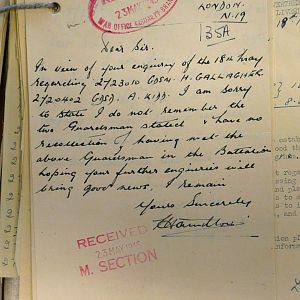 LONDON.
N.19
23 MAY
WAR OFFICE CASUALTY BRANCH
35A
Dear Sir.
In view of your enquiry of the 18th May
regarding 2723010 GDSN. H. GALLAGHER.
2720402 GDSN. A. KIDD. I am sorry
to state I do not remember the
two Guardsman stated & have no
recollection of having met the
above Guardsman in the Battalion
hoping your further enquiries will
bring good news, I remain
Yours Sincerely
RECEIVED
23 MAY 1945
M. SECTION